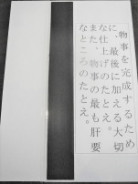 物事を完成するため
に、最後に加える大切
な仕上げのたとえ。
また、物事の最も肝要
なところのたとえ。